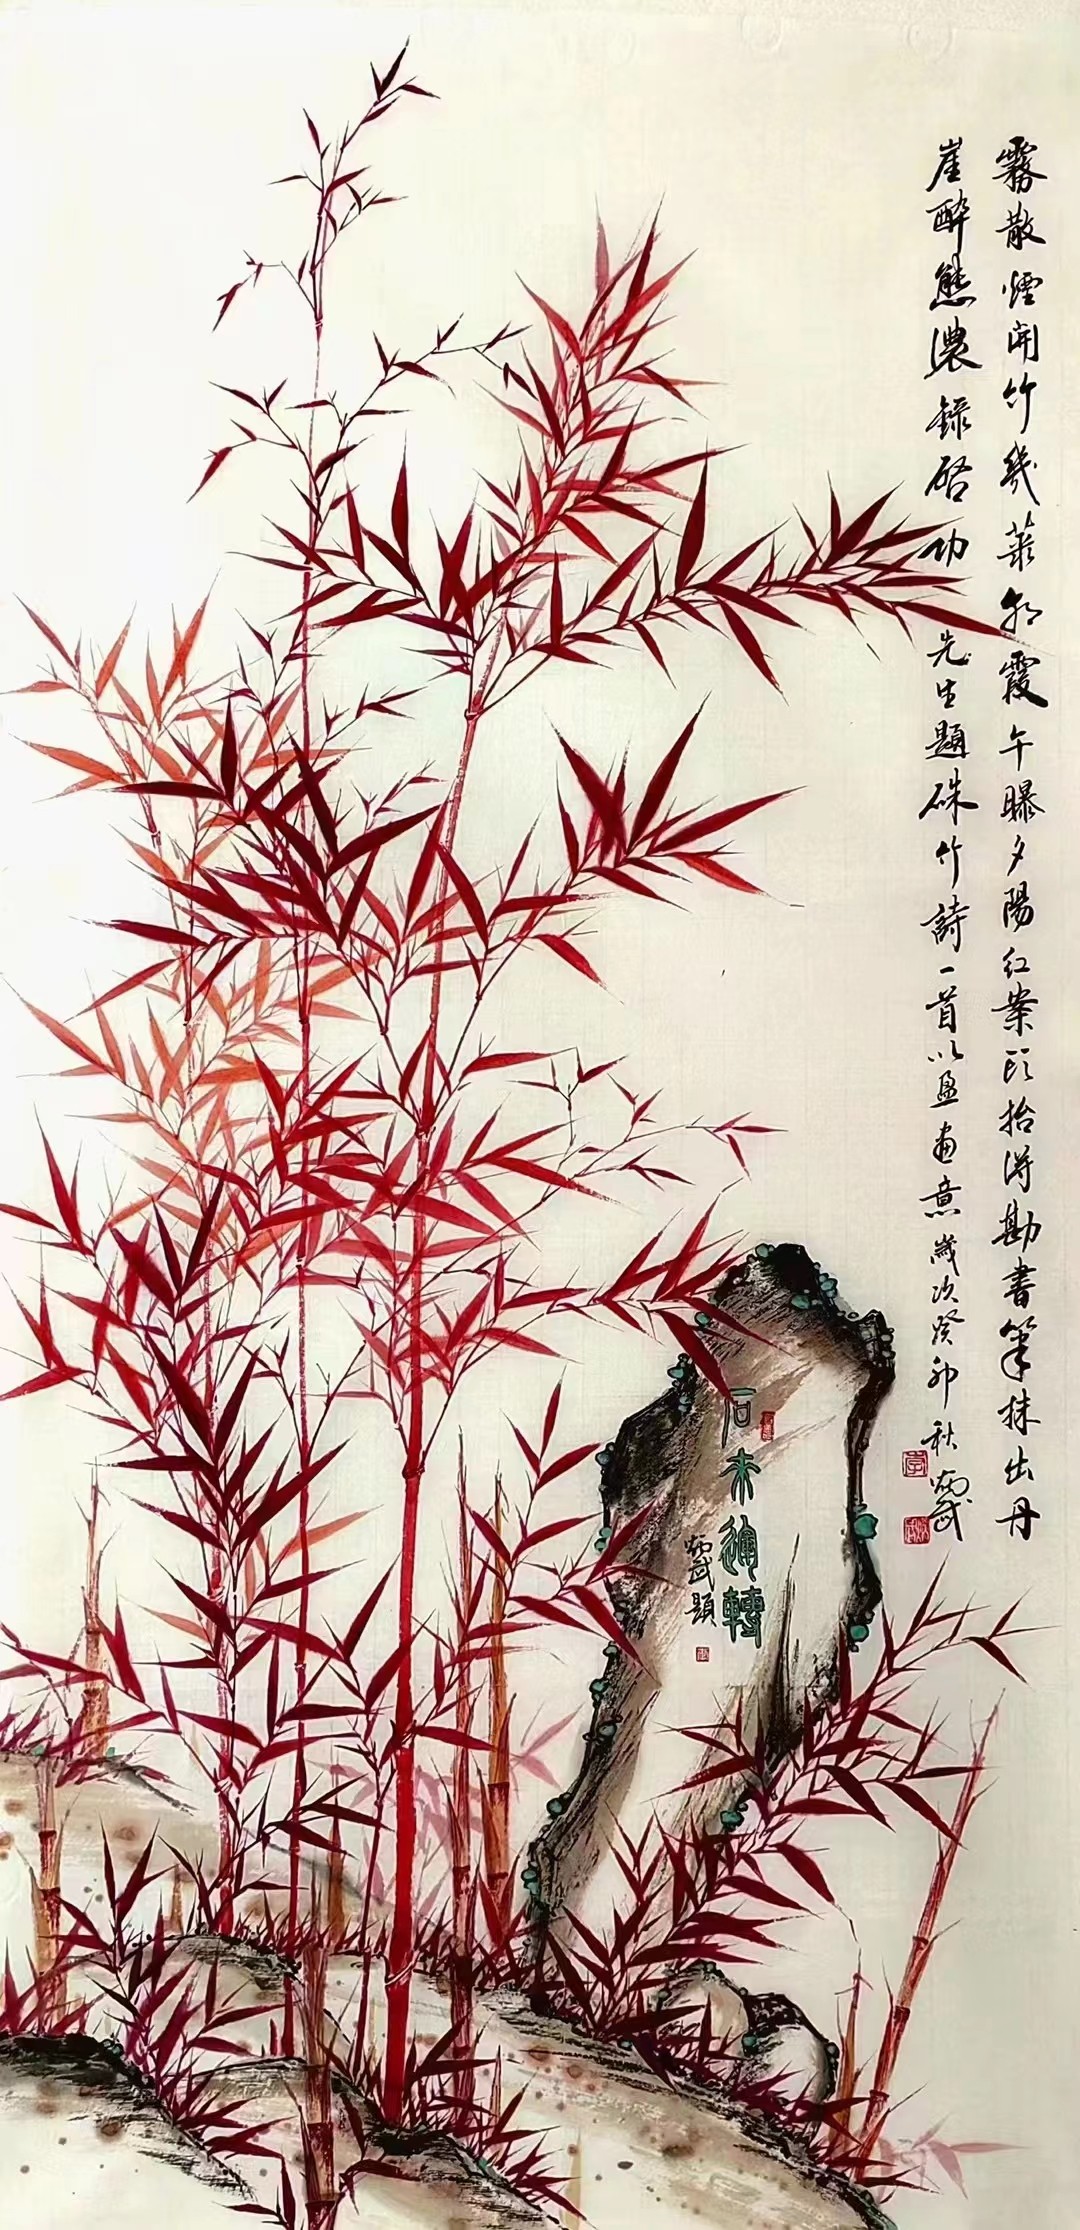 霧散煙開竹幾叢朝霞午曝夕陽紅案頭拾得勘書筆抹出丹
崖醉態濃錄啓功先生題硃竹詩一首以盈畫意歲次癸卯秋炳武
石來運轉
炳武題